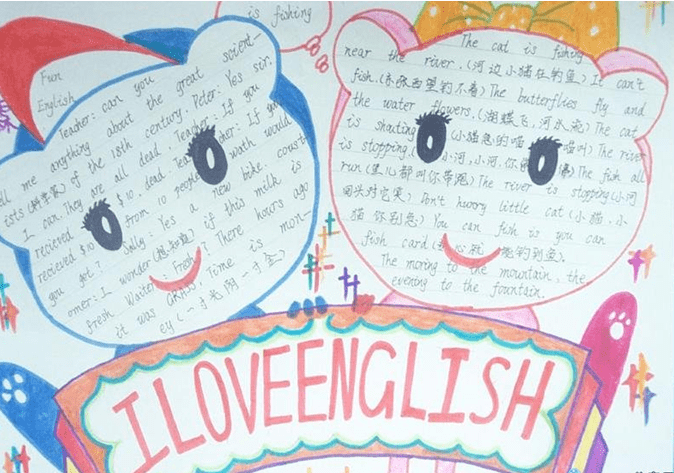 is fishing
Fun
English
Teacher: can you
tell me anything about the great scient-
ists (科学家) of the 18th century. Peter: Yes sir.
I can. They are all dead. Teacher: If you
recieved $10 from 10 people
you got? Sally: Yes a new bike. 
omer: I wonder if this milk is
fresh. Waiter: Fresh? There hours ago
it was GRASS. Time is mon-
ey (一寸光阴一寸金)
The cat is fishing
near the river. (河边小猫在钓鱼) It can't
fish. (东张西望钓不着) The butterflies fly and
the water flowers. (蝴蝶飞,河水流) The cat
is shouting (小猫急的喵 喵叫) The river
is stopping. (小河,小河你 ) The fish all
run (鱼儿都叫你带跑) The river is stopping (小河
回头对它笑) Don't worry little cat (小猫,小
猫 你别急) You can fish is you can
fish card 
The moring to the mountain, the
evening to the fountain.
I LOVE ENGLISH